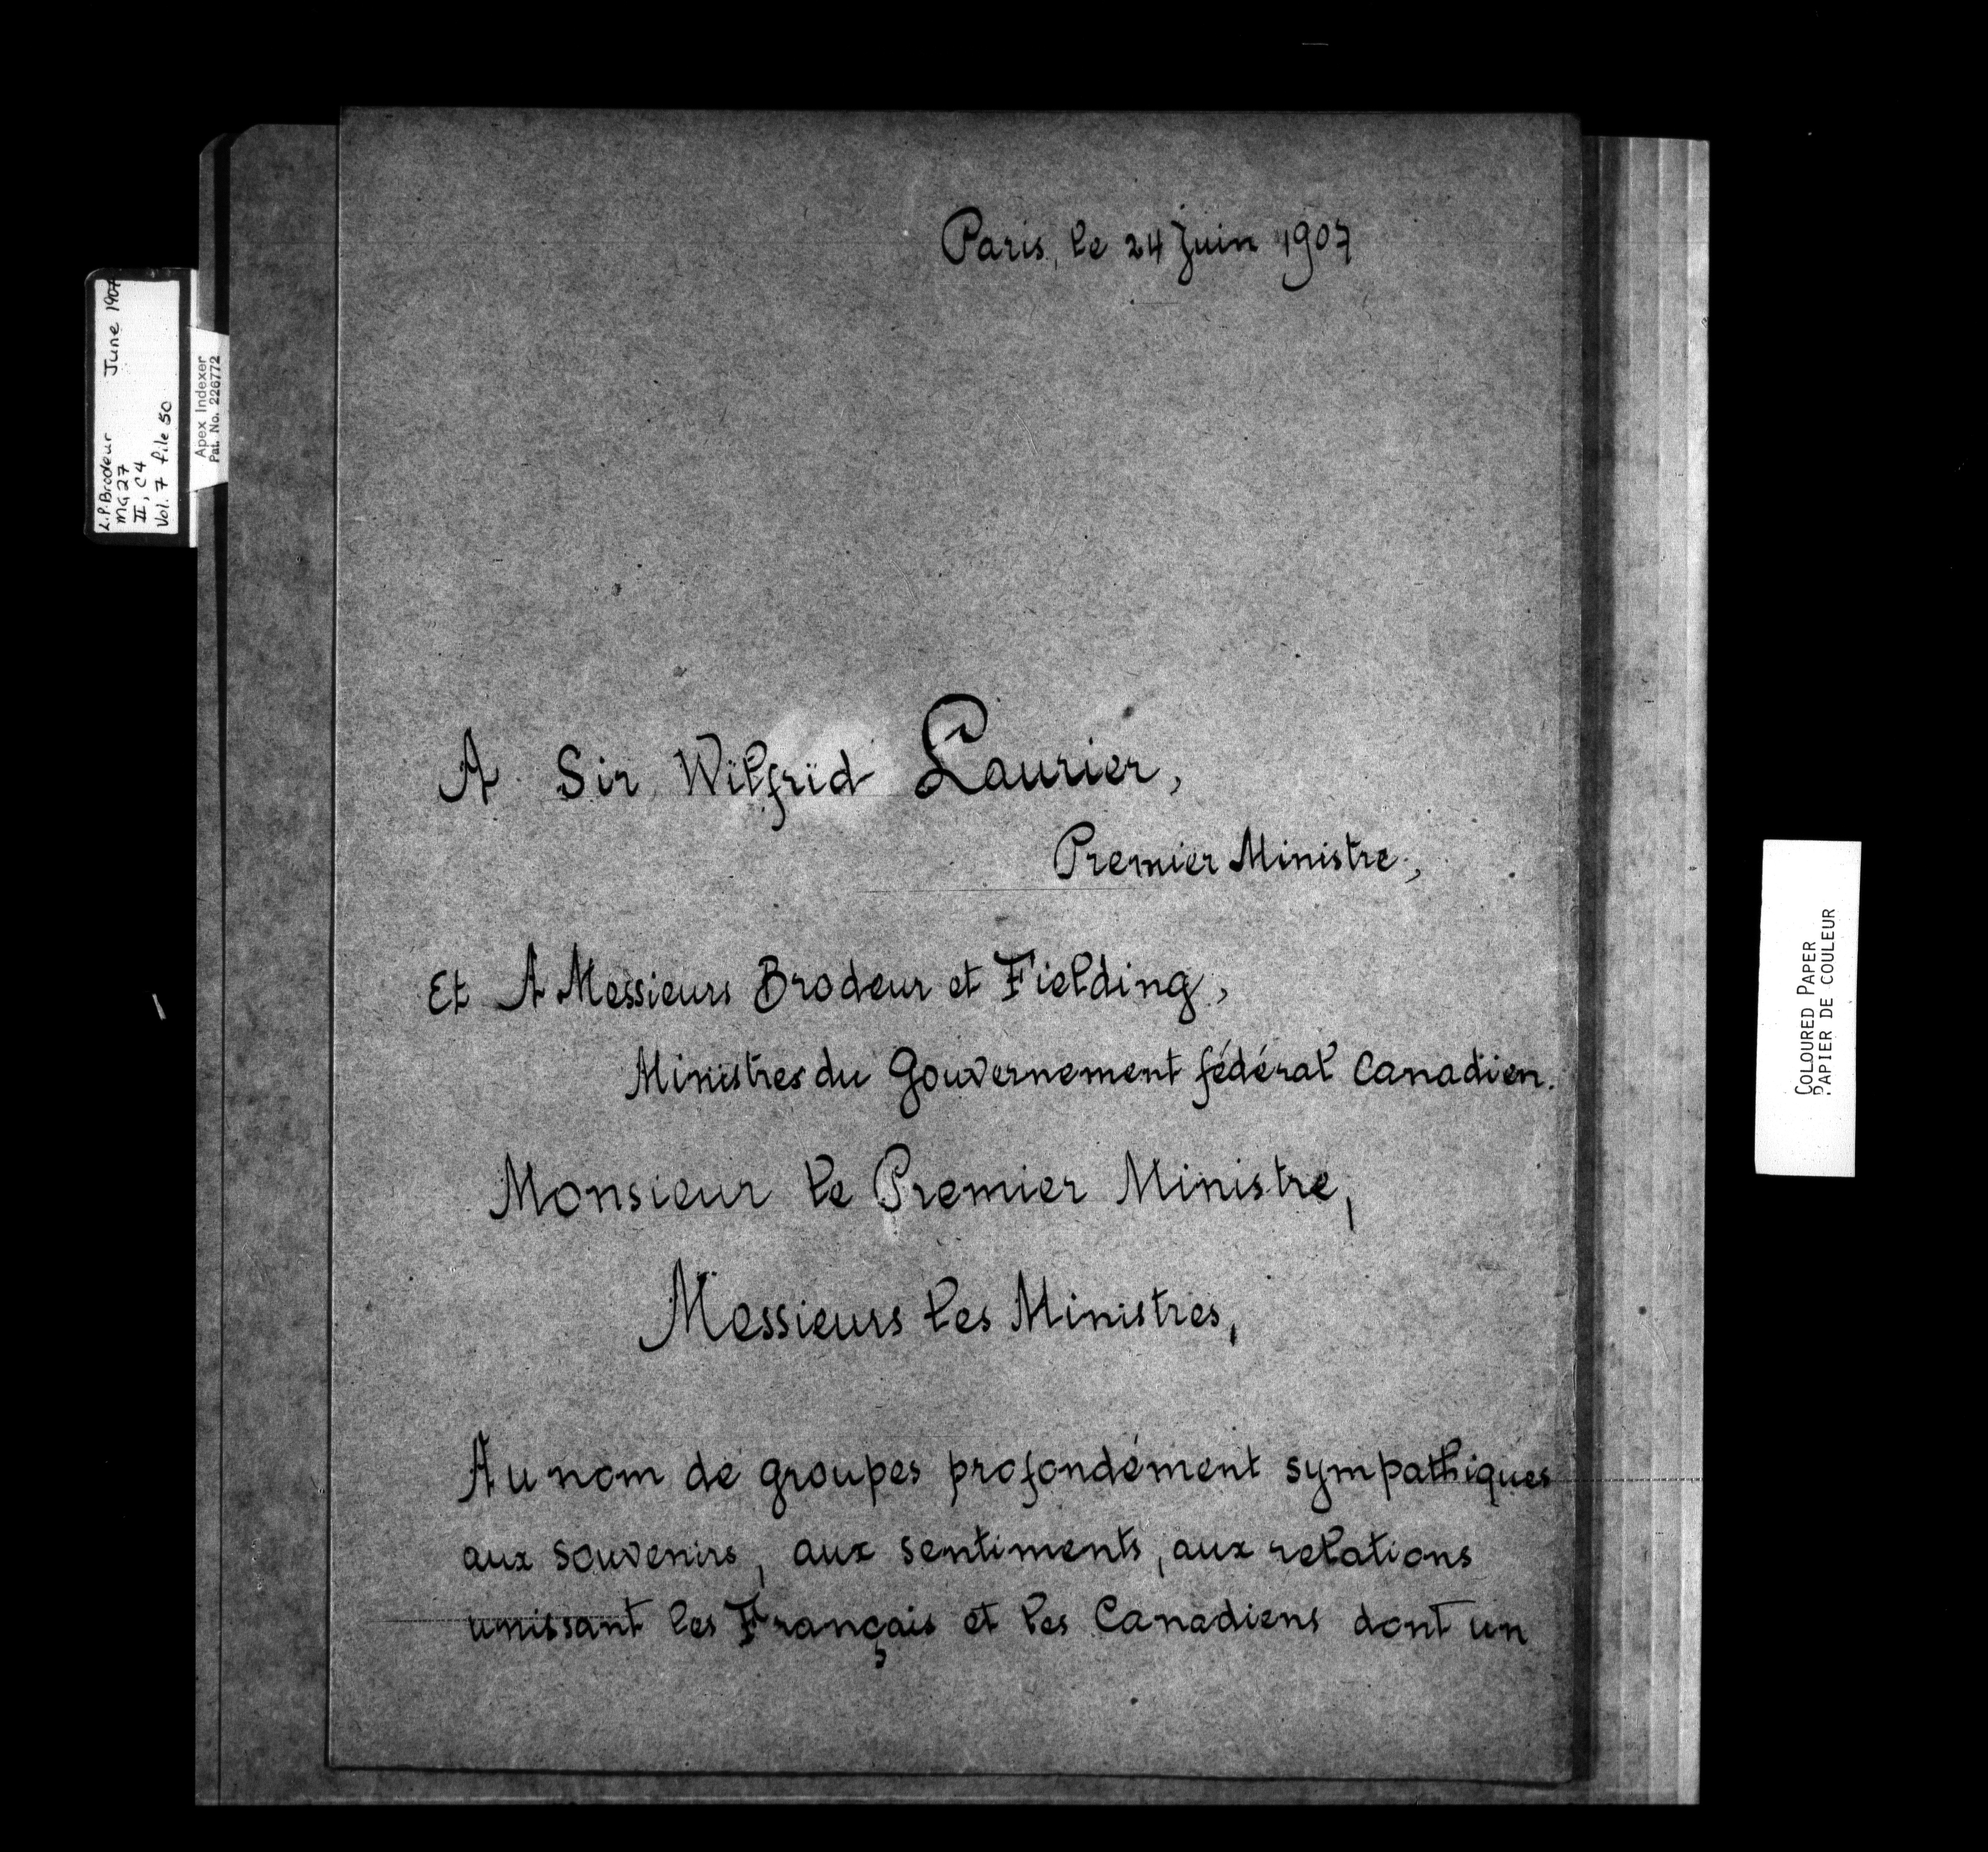 Paris, le 24 Juin 1907
A Sir Wilfrid Laurier,
Premier Ministre,
Et A Messieurs Brodeur et Fielding,
Ministres du Gouvernement fédéral Canadien.
Monsieur le Premier Ministre,
Messieurs les Ministres,
Au nom de groupes profondément sympathiques
aux souvenirs, aux sentiments, aux relations
unissant les Français et les Canadiens dont un
L.P. Brodeur June 1907
MG 27
II, C4
Vol. 7 file 50
Apex Indexer
Pat. No. 226772
COLOURED PAPER
PAPIER DE COULEUR